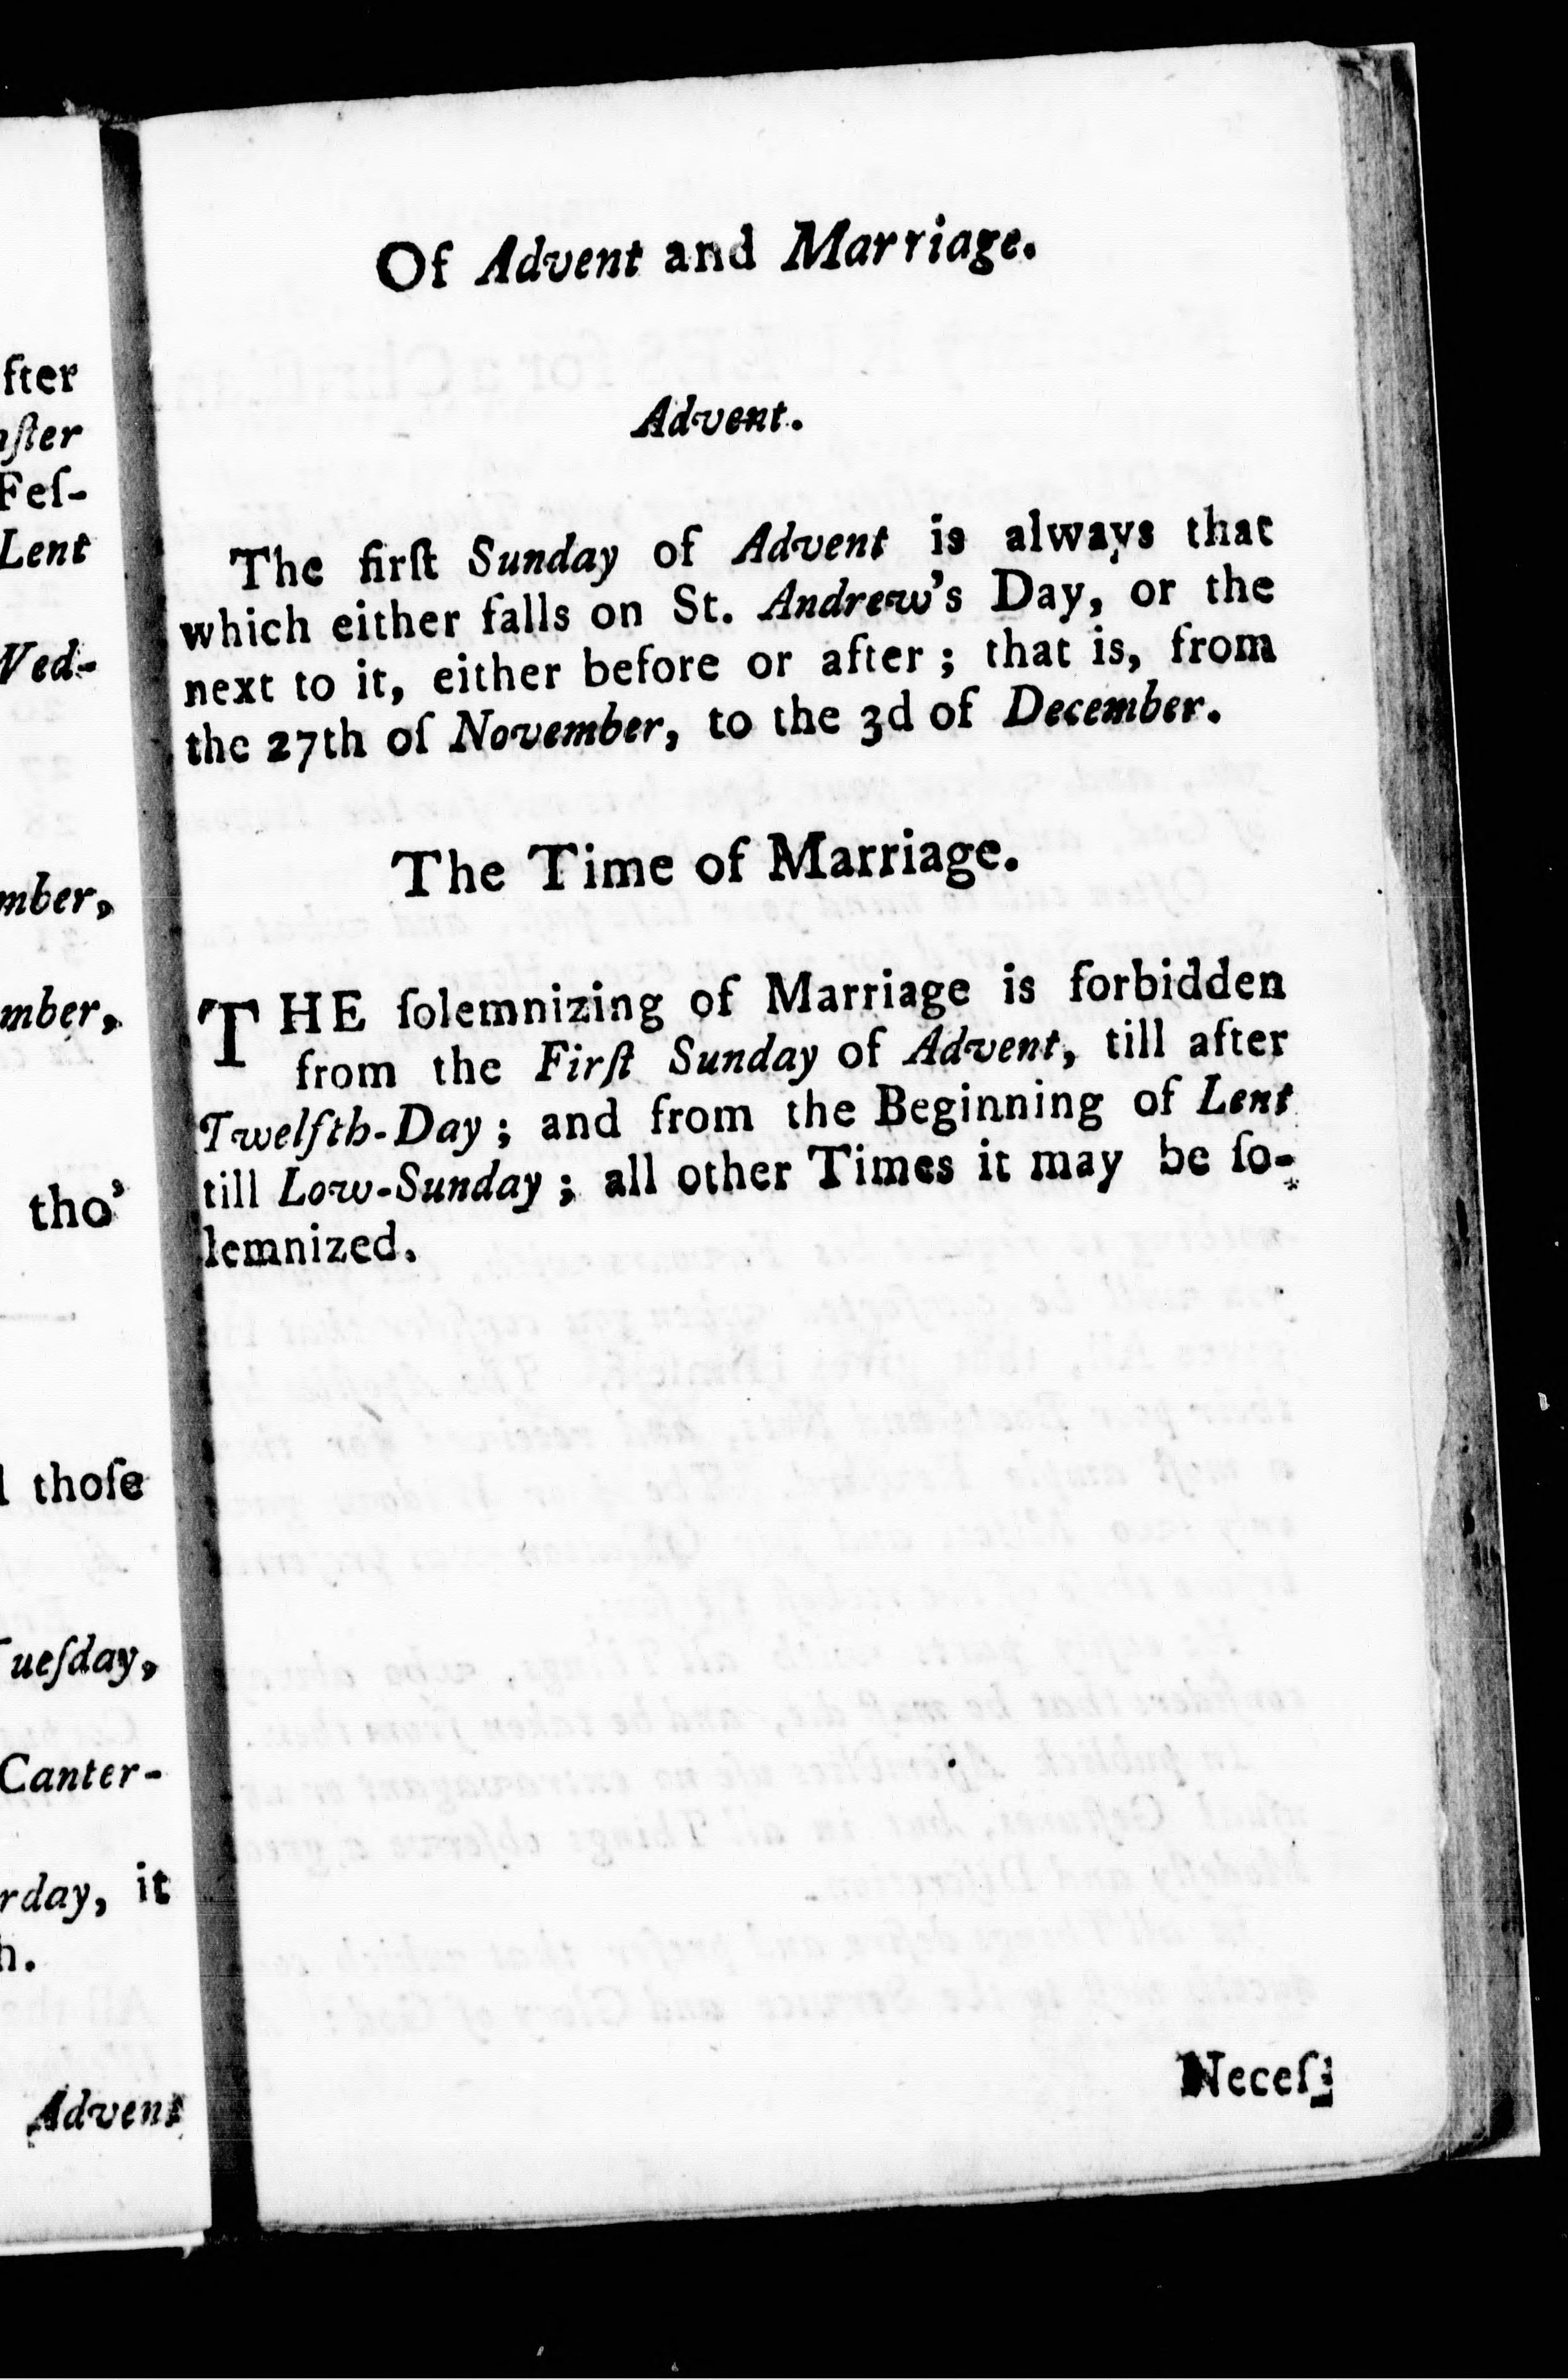 fter
ſter
Feſ-
Lent
Wed-
mber,
mber,
tho'
thoſe
Tueſday,
Canter-
rday, it
h.
Advent
Of Advent and Marriage.
Advent.
The firſt Sunday of Advent is always that
which either falls on St. Andrew's Day, or the
next to it, either before or after; that is, from
the 27th of November, to the 3d of December.
The Time of Marriage.
THE ſolemnizing of Marriage is forbidden
from the Firſt Sunday of Advent, till after
Twelfth-Day; and from the Beginning of Lent
till Low-Sunday; all other Times it may be ſo-
lemnized.
Neceſ-